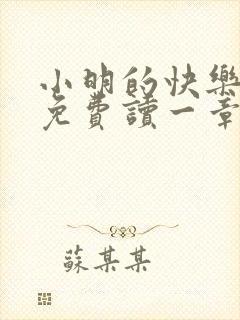 小明的快樂
免費讀一章
蘇某某